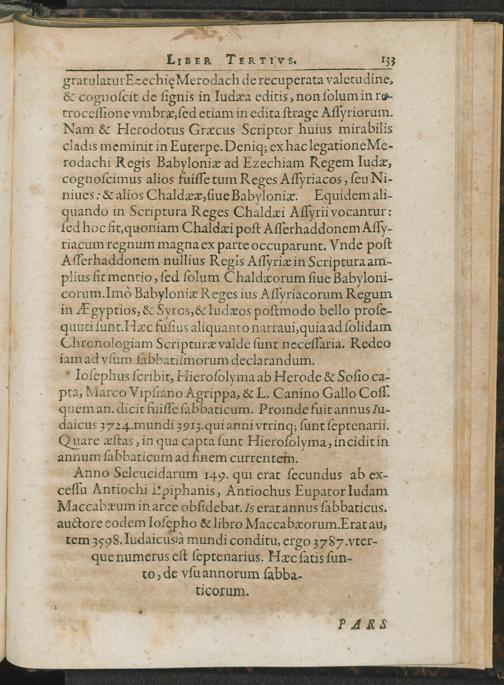 LIBER TERTIVS. 133
gratulatur Ezechię Merodach de recuperata valetudine,
& cognoſcit de ſignis in Iudæa editis, non ſolum in re-
troceſſione vmbræ, ſed etiam in edita ſtrage Aſſyriorum.
Nam & Herodotus Græcus Scriptor huius mirabilis
cladis meminit in Euterpe. Deniq; ex hac legatione Me-
rodachi Regis Babyloniæ ad Ezechiam Regem Iudæ,
cognoſcimus alios fuiſſe tum Reges Aſſyriacos, ſeu Ni-
niues: & alios Chaldææ, ſiue Babyloniæ. Equidem ali-
quando in Scriptura Reges Chaldæi Aſſyrii vocantur:
ſed hoc fit, quoniam Chaldæi poſt Aſſerhaddonem Aſſy-
riacum regnum magna ex parte occuparunt. Vnde poſt
Aſſerhaddonem nullius Regis Aſſyriæ in Scriptura am-
plius fit mentio, ſed ſolum Chaldæorum ſiue Babyloni-
corum. Imò Babyloniæ Reges ius Aſſyriacorum Regum
in Ægyptios, & Syros, & Iudæos poſtmodo bello proſe-
quuti ſunt. Hæc fuſius aliquanto narraui, quia ad ſolidam
Chronologiam Scripturæ valde ſunt neceſſaria. Redeo
iam ad vſum ſabbatiſmorum declarandum.
Ioſephus ſcribit, Hieroſolyma ab Herode & Soſio ca-
pta, Marco Vipſano Agrippa, & L. Canino Gallo Coſſ.
quem an. dicit fuiſſe ſabbaticum. Proinde fuit annus Iu-
daicus 3724. mundi 3913. qui anni vtrinq; ſunt ſeptenarii.
Quare æſtas, in qua capta ſunt Hieroſolyma, incidit in
annum ſabbaticum ad finem currentem.
Anno Seleucidarum 149. qui erat ſecundus ab ex-
ceſſu Antiochi Epiphanis, Antiochus Eupator Iudam
Maccabæum in arce obſidebat. Is erat annus ſabbaticus.
auctore eodem Ioſepho & libro Maccabæorum. Erat au,
tem 3598. Iudaicus: à mundi conditu, ergo 3787. vter-
que numerus eſt ſeptenarius. Hæc ſatis ſun-
to, de vſu annorum ſabba-
ticorum.
PARS